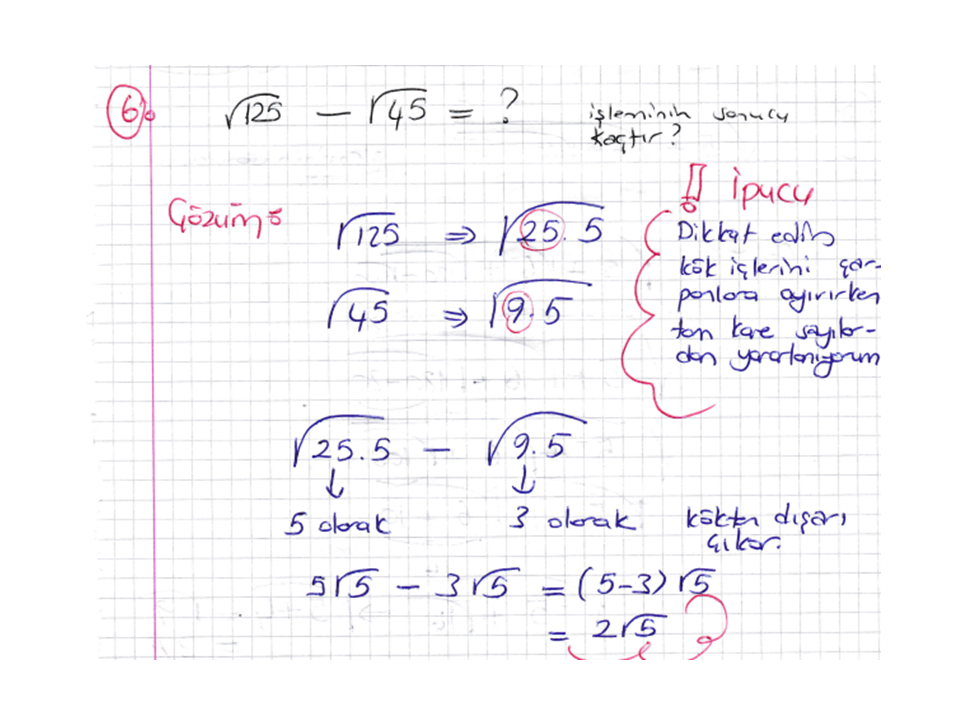 6)
√125 - √45 = ? işleminin sonucu
kaçtır?
İpucu
Çözüm:
√125 ⇒ √25.5
√45 ⇒ √9.5
Dikkat edin
kök içlerini çar-
panlara ayırırken
tam kare sayılar-
dan yararlanıyorum
√25.5 - √9.5
↓ ↓
5 olarak 3 olarak kökten dışarı
çıkar.
5√5 - 3√5 = (5-3)√5
= 2√5